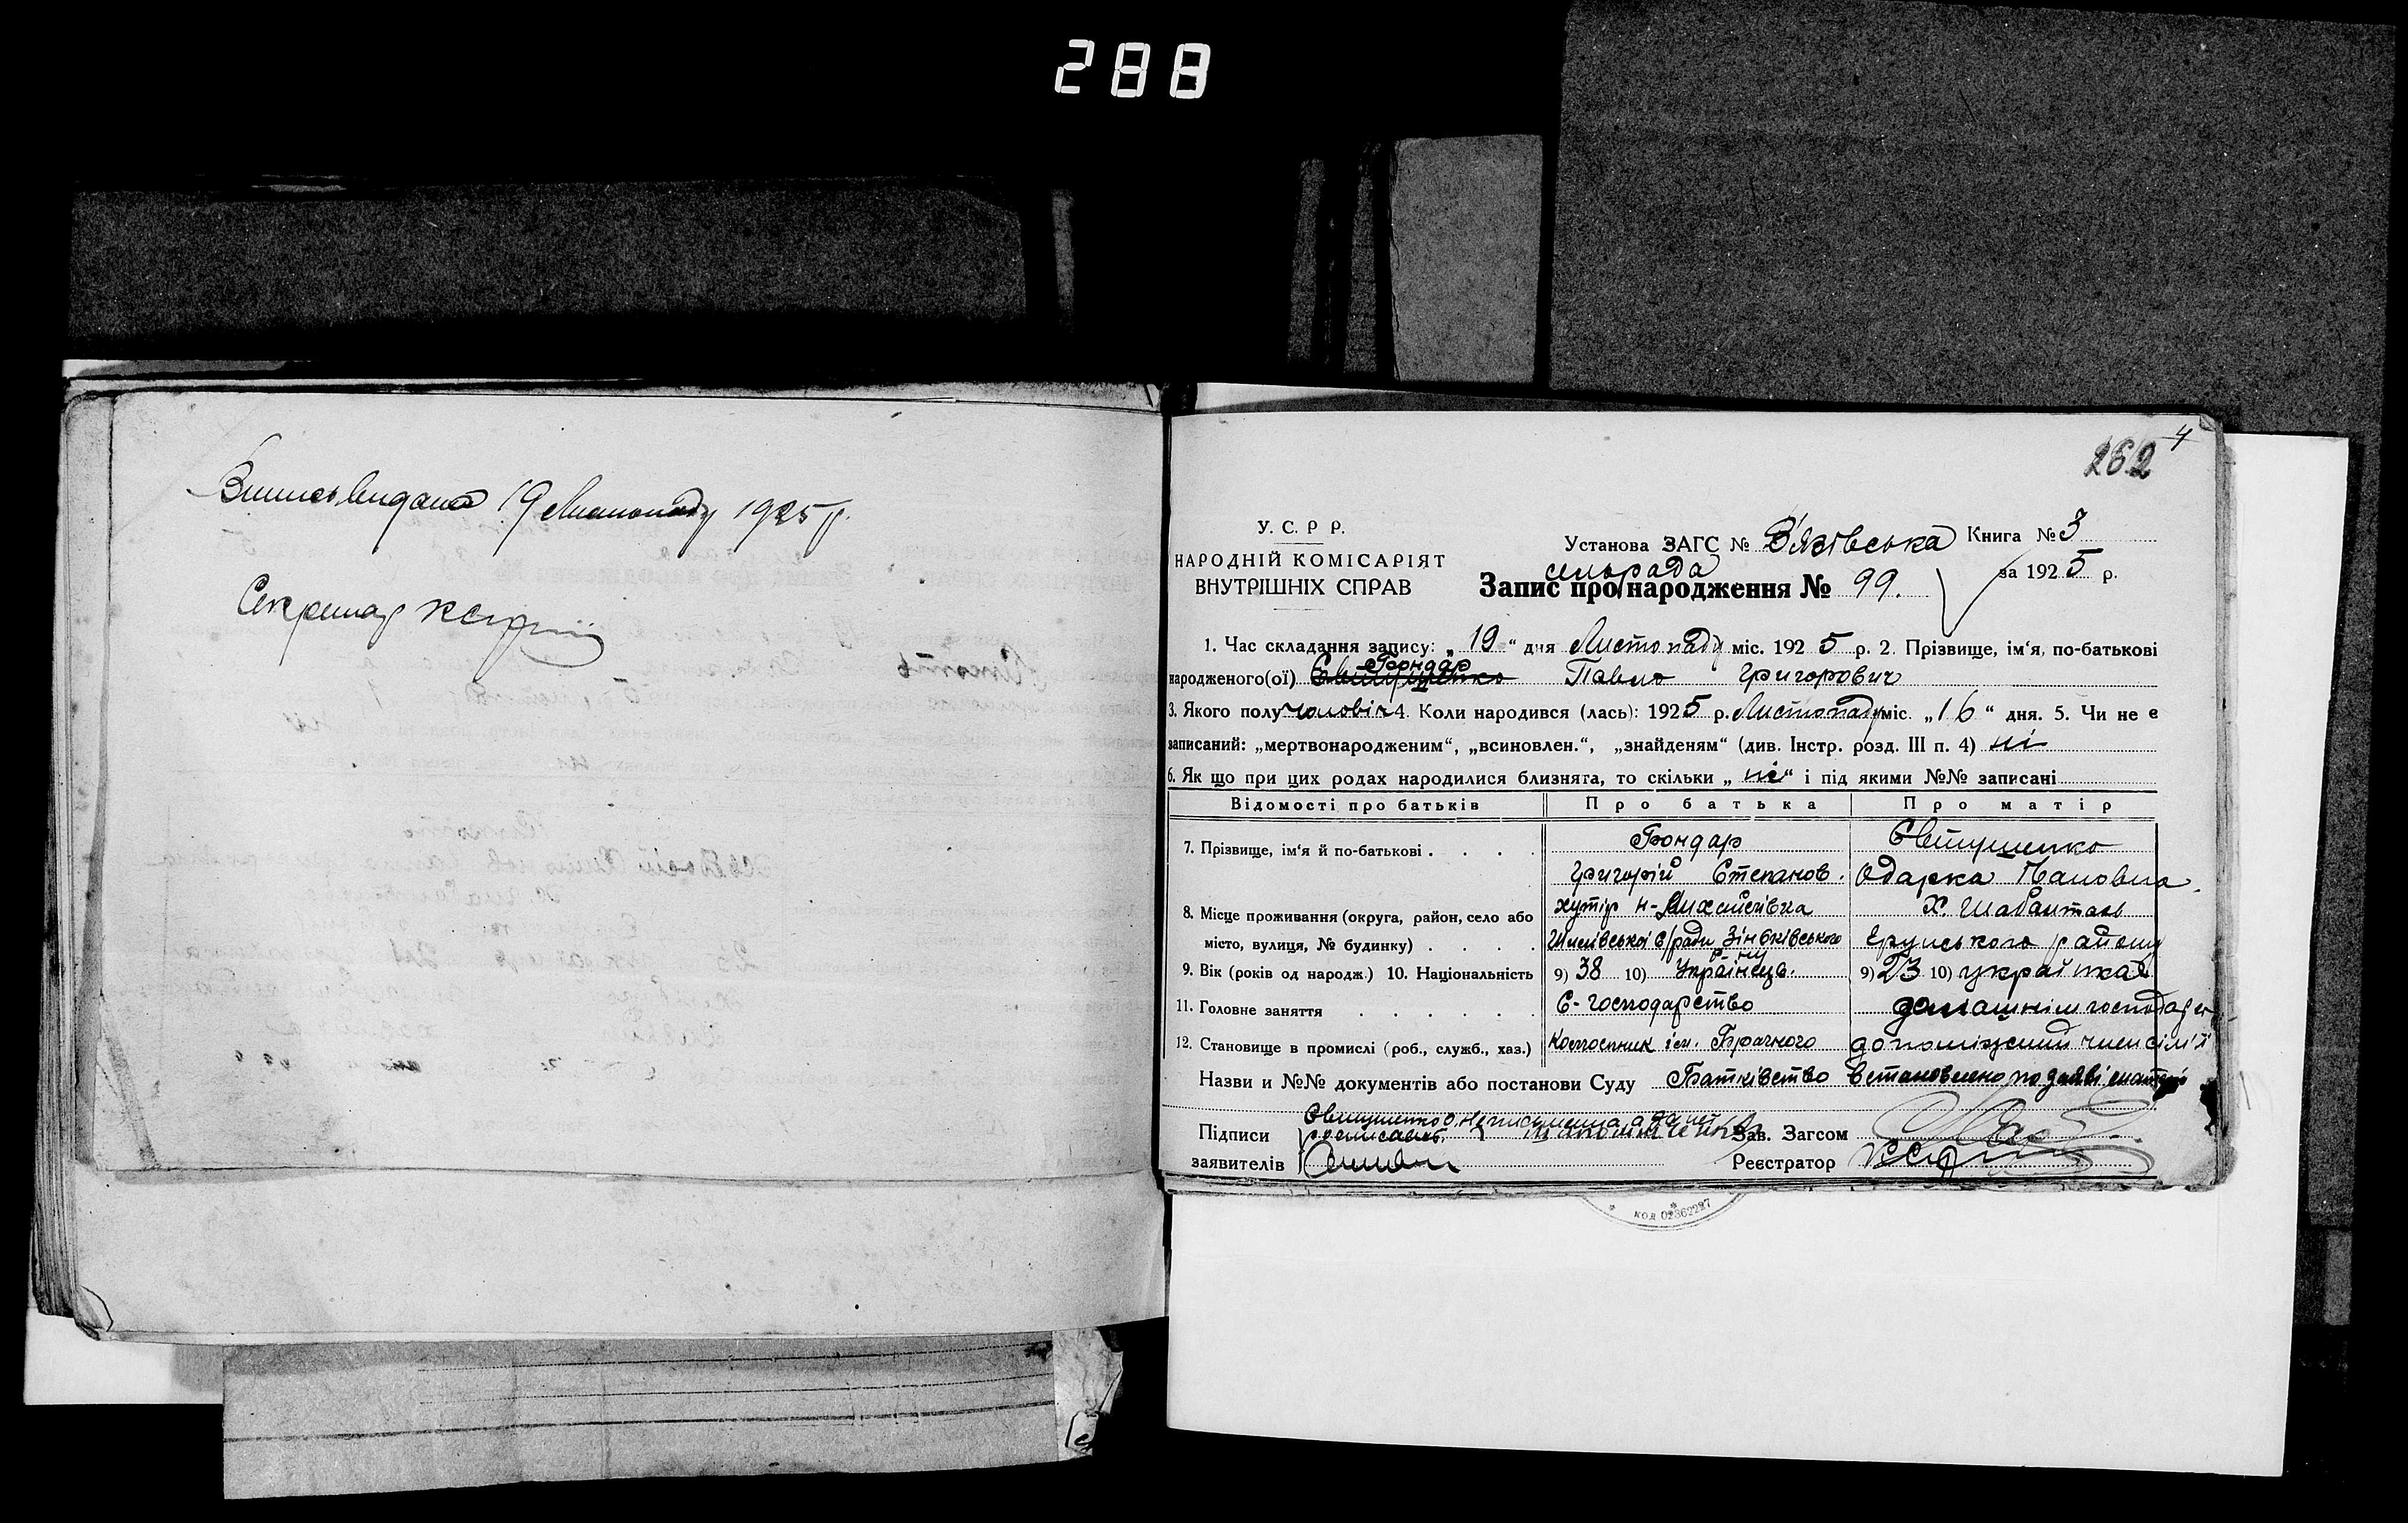 288
Випись видана 19 Листопаду 1925 р.
Секретар
4
262
У. С. Р. Р.
НАРОДНІЙ КОМІСАРІЯТ
ВНУТРІШНІХ СПРАВ
Установа ЗАГС № В'язівська Книга № 3
сельрада
за 1925 р.
Запис про народження № 99.
1. Час складання запису: „19“ дня Листопаду міс. 1925 р. 2. Прізвище, ім‘я, по-батькові
Бондар
народженого(ої) Євтушенко Павло Григорович
3. Якого полу чоловіч 4. Коли народився (лась): 1925 р. Листопаду міс. „16“ дня. 5. Чи не є
записаний: „мертвонародженим“, „всиновлен.“, „знайденям“ (див. Інстр. розд. III п. 4) ні
6. Як що при цих родах народилися близнята, то скільки „ні“ і під якими №№ записані
Відомості про батьків Про батька Про матір
7. Прізвище, ім‘я й по-батькові . . . . Бондар Євтушенко
Григорій Степанов. Одарка Павловна.
8. Місце проживання (округа, район, село або хутір Н-Михайлівка Х. Шабантань
місто, вулиця, № будинку) . . . . с/ради Зіньківського району
р-ну
9. Вік (років од народж.) 10. Національність 9) 38 10) Українець. 9) 23 10) українка
11. Головне заняття . . . . . . С-господарство домашнім господар
12. Становище в промислі (роб., служб., хаз.) ім. член сім'ї
Назви и №№ документів або постанови Суду Батківство встановлено по заяві матері
Євтушенко О. неписьменна а за неї
Підписи росписавсь Зав. Загсом
заявителів Реєстратор
код 02362227